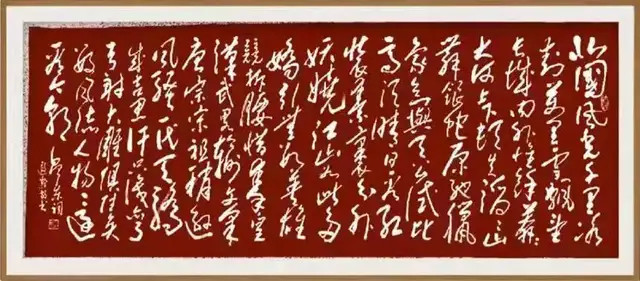 北國風光千里冰
封萬里雪飄望
長城内外惟餘莽莽
大河上下頓失滔滔山
舞銀蛇原馳臘
象欲與天公試比
高須晴日看紅
裝素裹分外
妖嬈江山如此多
嬌引無數英雄
競折腰惜秦皇
漢武略輸文采
唐宗宋祖稍遜
風騷一代天驕
成吉思汗只識彎
弓射大雕俱往矣
數風流人物還
看今朝